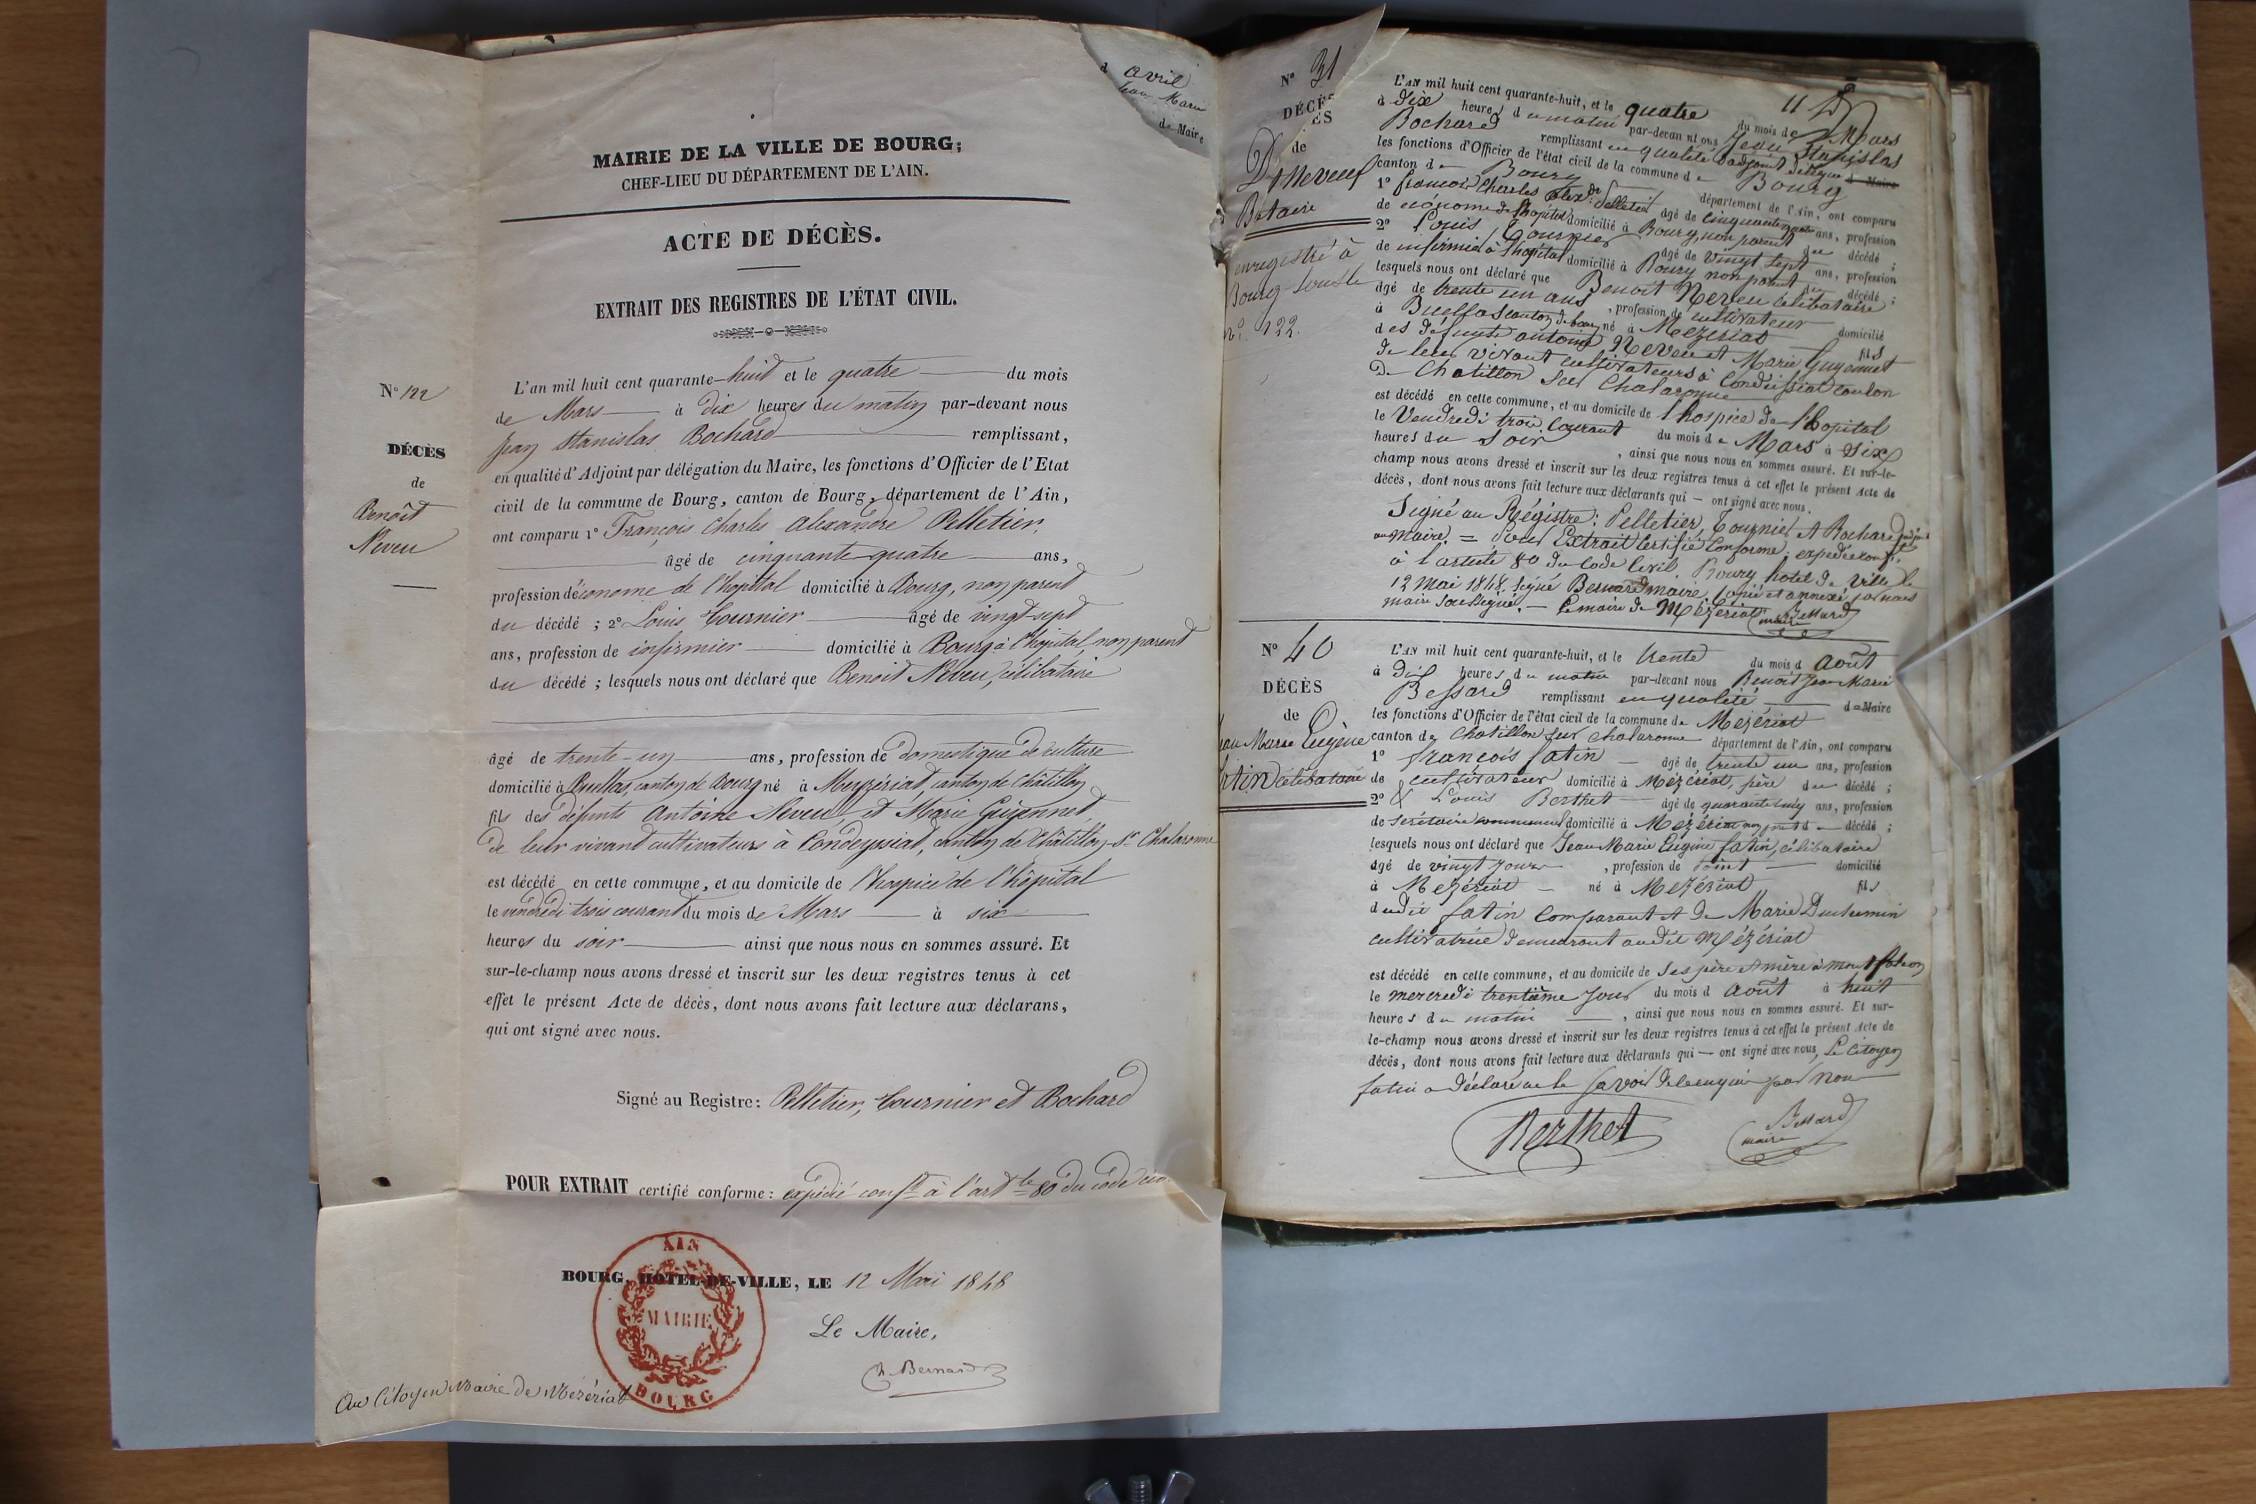 MAIRIE DE LA VILLE DE BOURG;
CHEF-LIEU DU DÉPARTEMENT DE L'AIN.
ACTE DE DÉCÈS.
EXTRAIT DES REGISTRES DE L'ÉTAT CIVIL.
N° 122
DÉCÈS
de
Benoît
Neveu
L'an mil huit cent quarante-huit et le quatre du mois
de Mars à dix heures du matin par-devant nous
Jean Stanislas Bochard remplissant,
en qualité d'Adjoint par délégation du Maire, les fonctions d'Officier de l'Etat
civil de la commune de Bourg, canton de Bourg, département de l'Ain,
ont comparu 1° François Charles Alexandre Pelletier,
âgé de cinquante-quatre ans,
profession d'économe de l'hôpital domicilié à Bourg, non parent
du décédé; 2° Louis Tournier âgé de vingt-sept
ans, profession de infirmier domicilié à Bourg à l'hôpital non parent
du décédé; lesquels nous ont déclaré que Benoit Neveu, célibataire
âgé de trente-un ans, profession de domestique de culture
domicilié à Buellas, canton de Bourg né à Meyzériat, canton de Châtillon
fils des défunts Antoine Neveu et Marie Guyennet,
de leur vivant cultivateurs à Condeyssiat, canton de Châtillon-sr-Chalaronne
est décédé en cette commune, et au domicile de l'hospice de l'hôpital
le vendredi trois courant du mois de Mars à six
heures du soir ainsi que nous nous en sommes assuré. Et
sur-le-champ nous avons dressé et inscrit sur les deux registres tenus à cet
effet le présent Acte de décès, dont nous avons fait lecture aux déclarans,
qui ont signé avec nous.
Signé au Registre: Pelletier, Tournier et Bochard
POUR EXTRAIT certifié conforme: expédié conft à l'artle 80 du code civ
BOURG, HOTEL-DE-VILLE, LE 12 Mai 1848
Le Maire,
Bernard
AIN
MAIRIE
BOURG
Au Citoyen Maire de Mézériat
d avril
Jean Marie
de Maire
N° 31
DÉCÈS
de
Neveu
enregistré à
Bourg sous le
n° 122.
L'AN mil huit cent quarante-huit, et le quatre du mois de Mars
à dix heures du matin par-devant nous Jean Stanislas
Bochard remplissant en qualité d'adjoint délégué d Maire
les fonctions d'Officier de l'état civil de la commune de Bourg
canton de Bourg département de l'Ain, ont comparu
1° françois Charles Alexdre Pelletier agé de cinquante quatre ans, profession
de économe de l'hôpital domicilié à Bourg, non parent du décédé;
2° Louis Tournier agé de vingt sept ans, profession
de infirmier à l'hôpital domicilié à Bourg non parent du décédé;
lesquels nous ont déclaré que Benoit Neveu célibataire
agé de trente un ans, profession de cultivateur domicilié
à Buellas canton de bourg né à Mézériat fils
des défunts antoine Neveu et Marie Guyennet
de leur vivant cultivateurs à Condeissiat canton
De Chatillon sur Chalaronne
est décédé en cette commune, et au domicile de l'hospice de l'hopital
le Vendredi trois Courant du mois de Mars à six
heures du soir, ainsi que nous nous en sommes assuré. Et sur-le-
champ nous avons dressé et inscrit sur les deux registres tenus à cet effet le présent Acte de
décès, dont nous avons fait lecture aux déclarants qui ont signé avec nous.
Signé au Régistre: Pelletier, Tournier et Bochard adjoint
au maire. = Pour Extrait Certifié Conforme, expédié conft
à l'article 80 du Code Civil. Bourg hotel de Ville le
12 mai 1848. signé Bernard maire, copié et annexé par nous
maire soussigné. — Le maire de Mézériat Bessard
maire
N° 40
DÉCÈS
de
Jean Marie Eugène
fatin célibataire
L'AN mil huit cent quarante-huit, et le trente du mois d août
à dix heures du matin par-devant nous Benoit Jean Marie
Bessard remplissant en qualité de Maire
les fonctions d'Officier de l'état civil de la commune de Mézériat
canton de Chatillon sur chalaronne département de l'Ain, ont comparu
1° françois fatin agé de trente un ans, profession
de cultivateur domicilié à Mézériat, père du décédé;
2° & Louis Berthet agé de quarante cinq ans, profession
de secrétaire communal domicilié à Mézériat non parent d décédé;
lesquels nous ont déclaré que Jean Marie Eugène fatin, célibataire
agé de vingt jours, profession de point domicilié
à Mézériat né à Mézériat fils
dudit fatin Comparant et de Marie Duchemin
cultivatrice demeurant audit Mézériat
est décédé en cette commune, et au domicile de ses père et mère à
le mercredi trentième jour du mois d août à huit
heures du matin, ainsi que nous nous en sommes assuré. Et sur-
le-champ nous avons dressé et inscrit sur les deux registres tenus à cet effet le présent Acte de
décès, dont nous avons fait lecture aux déclarants qui — ont signé avec nous, Le Citoyen
fatin a déclaré ne le savoir de ce enquis par nous
Berthet
Bessard
maire